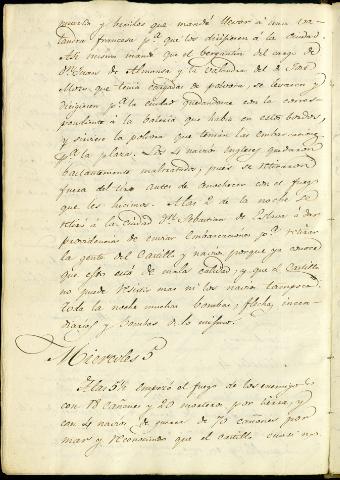 muertos y heridos que mandé llevar á una ba-
landra francesa p.ª q.e los dirijiesen á la ciudad.
Asi mismo mandé que el bergantin del cargo de
D.n Juan de Almansa y la balandra del de
que tenia cargadas de polvora, se levasen y
dirijiesen p.ª la ciudad quedandome con la corres-
pondiente á la bateria que habia en estos bordos,
y sirviese la polvora que tenian las embarcaciones
p.ª la plaza. Los 4 navios Ingleses quedaron
bastantemente maltratados, pues se retiraron
fuera del tiro antes de anochecer con el fuego
que les hicimos. A las 2 de la noche se
retiró á la ciudad D.n Sebastian de Eslava á dar
providencias de enviar Embarcaciones p.ª retirar
la gente del Castillo y navios, porque ya conoce
que esto está de mala calidad, y que el Castillo
no puede resistir mas ni los navios tampoco.
toda la noche muchas bombas, flechas incen-
diarias y bombas de lo mismo.
Miercoles 5
A las 5 ½ empezó el fuego de los enemigos
con 18 cañones y 20 morteros por tierra, y
con 4 navios de guerra de 70 cañones por
mar y reconocimos que el castillo casi no